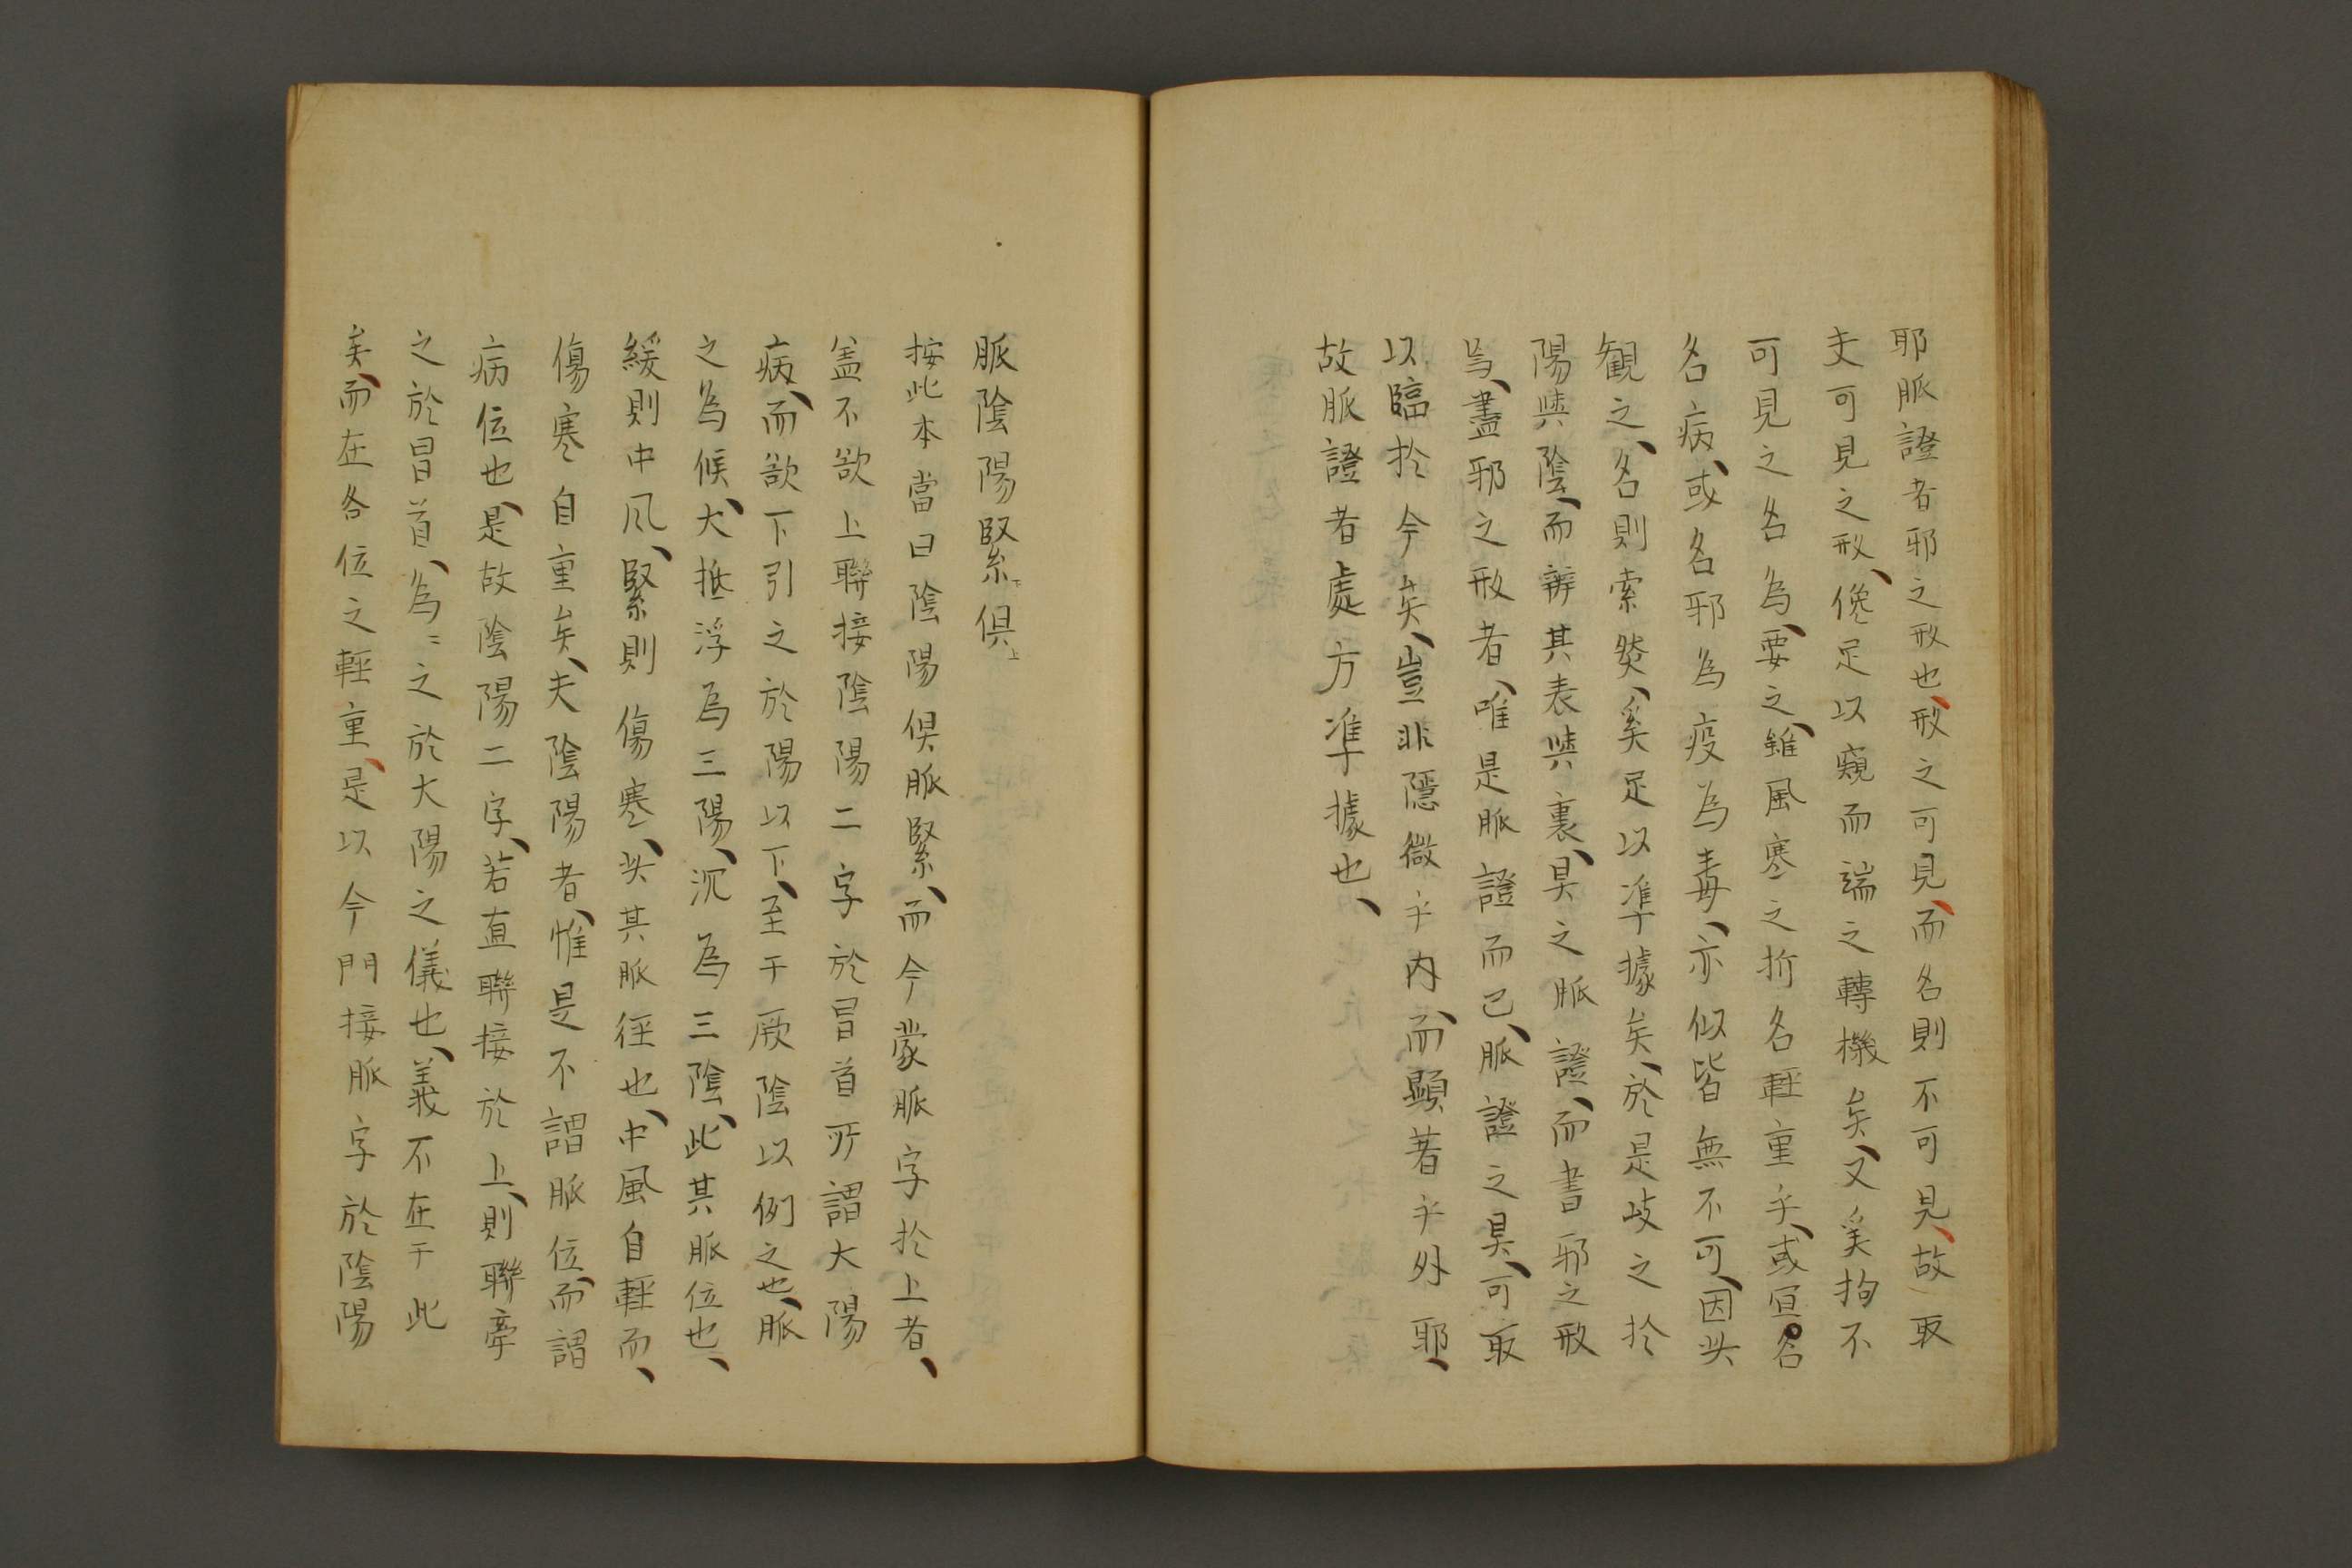 耶脈證者邪之形也、形之可見、而名則不可見、故取
夫可見之形、儘足以窺而端之轉機矣、又奚拘不
可見之名為、要之、雖風寒之折名輕重乎、或冝名
名病、或名邪為疫為毒、亦似皆無不可、因此
観之、名則索然、奚足以準據矣、於是歧之於
陽與陰、而辨其表與裏、具之脈證、而書邪之形
焉、盡邪之形者、唯是脈證而已、脈證之具、可取
以臨於今矣、豈非隱微乎内、而顯著乎外耶、
故脈證者處方準據也、
脈陰陽緊下俱上
按此本當曰陰陽俱脈緊、而今蒙脈字於上者、
盖不欲上聯接陰陽二字於冒首所謂大陽
病、而欲下引之於陽以下、至于厥陰以例之也、脈
之為候、大抵浮為三陽、沉為三陰、此其脈位也、
緩則中风、緊則傷寒、此其脈徑也、中風自輕而、
傷寒自重矣、夫陰陽者、惟是不謂脈位、而謂
病位也、是故陰陽二字、若直聯接於上、則聯牽
之於冒首、為〻之於大陽之儀也、義不在于此
矣、而在各位之輕重、是以今門接脈字於陰陽